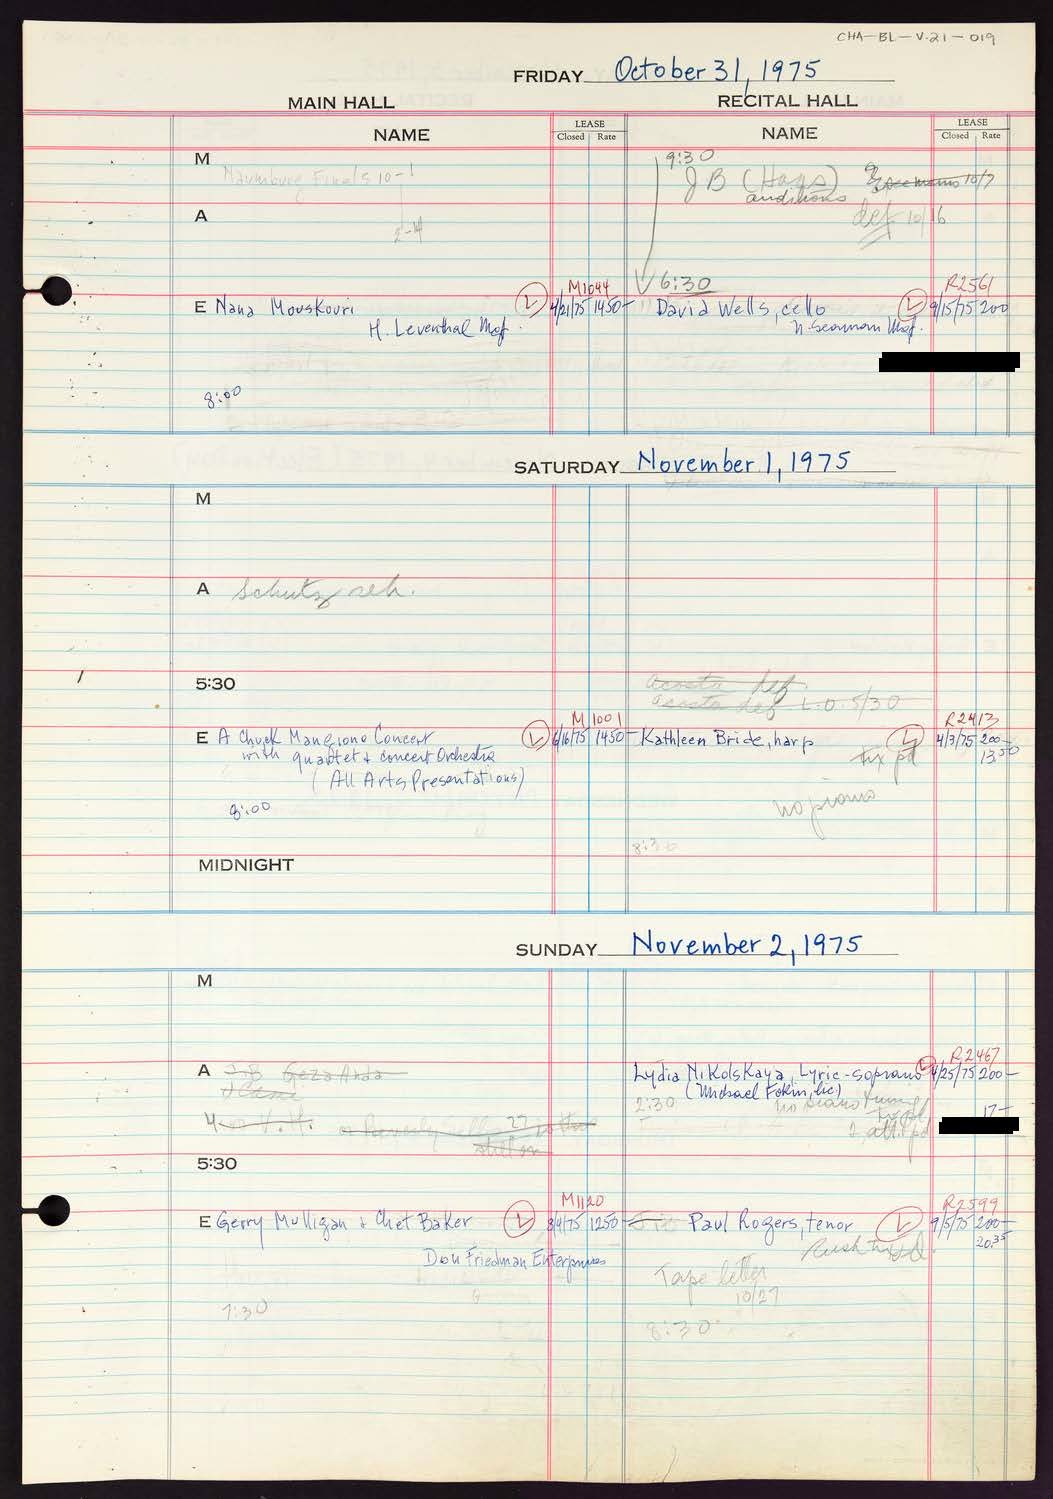 CHA-BL-V.21-019
FRIDAY October 31, 1975
MAIN HALL
RECITAL HALL
NAME
LEASE
Closed Rate
NAME
LEASE
Closed Rate
M
Naumburg Finals 10-1
9:30
JB (Haas)
auditions
10/7
def 10/16
A
2-4
6:30
M1044
R2561
E Nana Mouskouri
L
4/21/75 1450-
David Wells, cello
L
9/15/75 200
H. Leventhal Mgt.
N. Seaman Mgt.
8:00
SATURDAY November 1, 1975
M
A Schutz reh.
5:30
Acosta def.
Acosta def L.O. 5/30
M 1001
R2413
E A Chuck Mangione Concert
L
6/16/75 1450-
Kathleen Bride, harp
L
4/3/75 200-
with quartet & concert Orchestra
tix pd
13.50
(All Arts Presentations)
no piano
8:00
8:30
MIDNIGHT
SUNDAY November 2, 1975
M
R2467
A
Geza Anda
Lydia Nikolskaya, Lyric-soprano
L
4/25/75 200-
(Michael Fokin, lic)
2:30
no piano tuning
tix pd
17-
2 att. pd
5:30
M1120
R2599
E Gerry Mulligan & Chet Baker
L
8/4/75 1250-
Paul Rogers, tenor
L
9/5/75 200-
Rush tix pd.
20.35
Don Friedman Enterprises
Tape letter
10/27
7:30
8:30